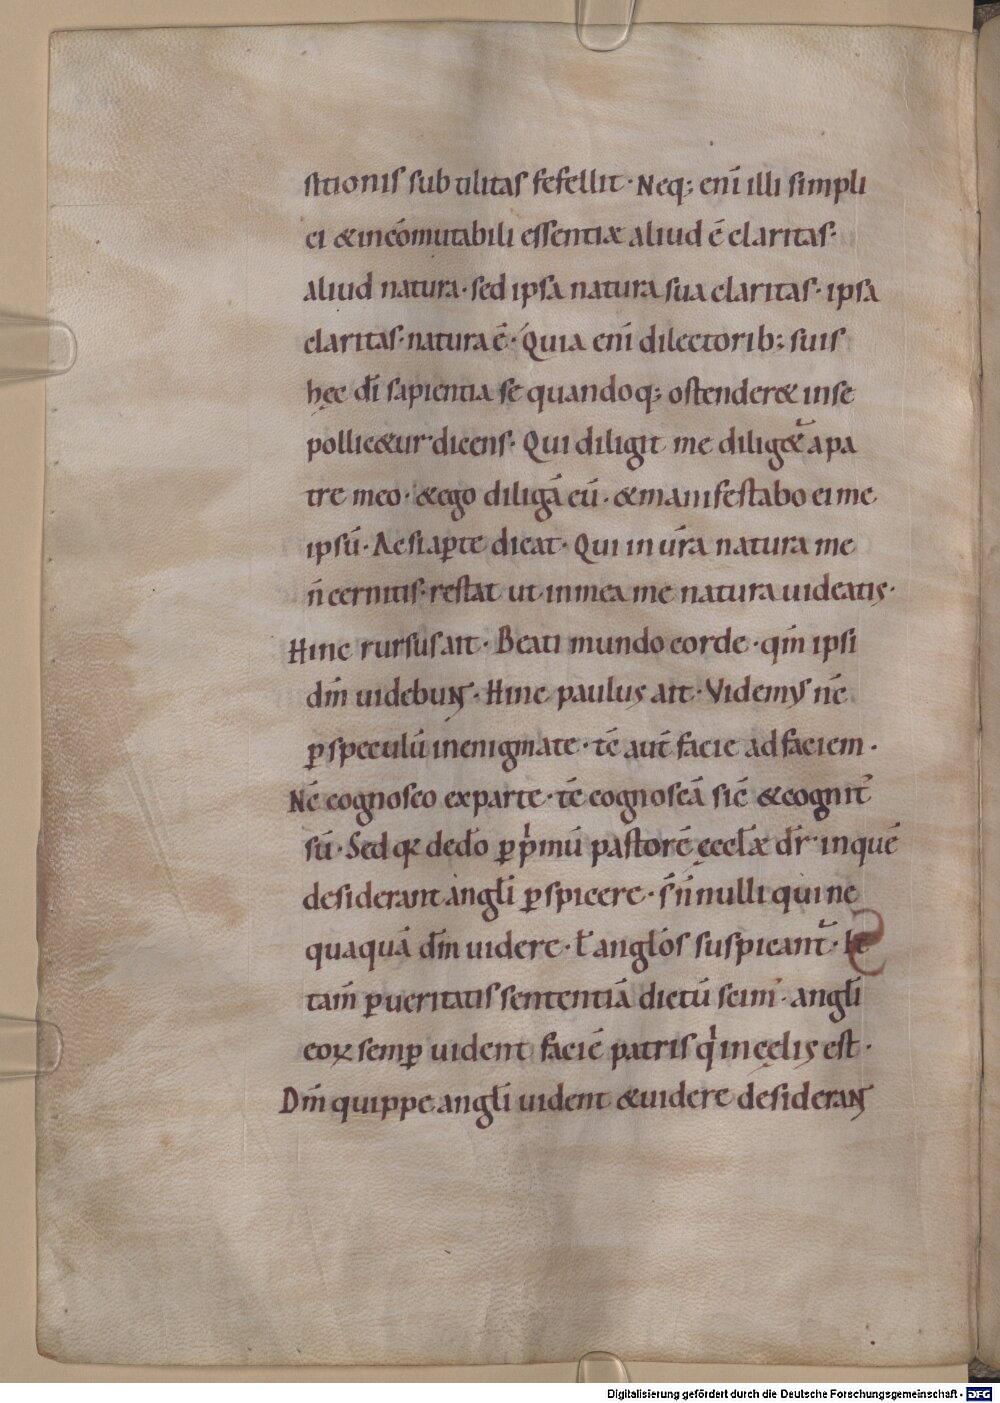 stionis sub tilitas fefellit · Neq; eni̅ illi simpli
ci &inco̅mutabili essentiæ aliud e̅ claritas·
aliud natura · sed ipsa natura sua claritas · ipsa
claritas · natura e̅ · Quia eni̅ dilectorib; suis
hęc di̅ sapientia se quandoq; ostender& inse
pollic&ur · dicens · Qui diligit me dilig&᷑ apa
tre meo · &ego diliga̅ eu̅ · &manifestabo ei me
ipsu̅ · Ac siaꝑte dicat · Qui in ur̅a natura me
n̅ cernitis · restat ut inmea me natura uideatis ·
Hinc rursus ait · Beati mundo corde · qm̅ ipsi
dm̅ uidebunt · Hinc paulus ait · Videmus nc̅
ꝑ speculu̅ inenigmate · tc̅ aut̅ facie adfaciem ·
Nc̅ cognosco exparte · tc̅ cognosca̅ sic̅ &cognit᷒
su̅ · Sed qꝛ dedo̅ ꝑ pͥmu̅ pastore̅ ęccl̅æ dr̅ · inque̅
desiderant angl̅i ꝑspicere · s̅n̅nulli qui ne
quaqua̅ dm̅ uidere · l̅ anglo̅s suspicant᷑ · Et
tam̅ ꝑ ueritatis sententia̅ dictu̅ scim᷒ · angl̅i
eoꝝ semꝑ uident facie̅ patris qͥ incęlis est ·
Dm̅ quippe angl̅i uident &uidere desiderant
Digitalisierung gefördert durch die Deutsche Forschungsgemeinschaft - DFG